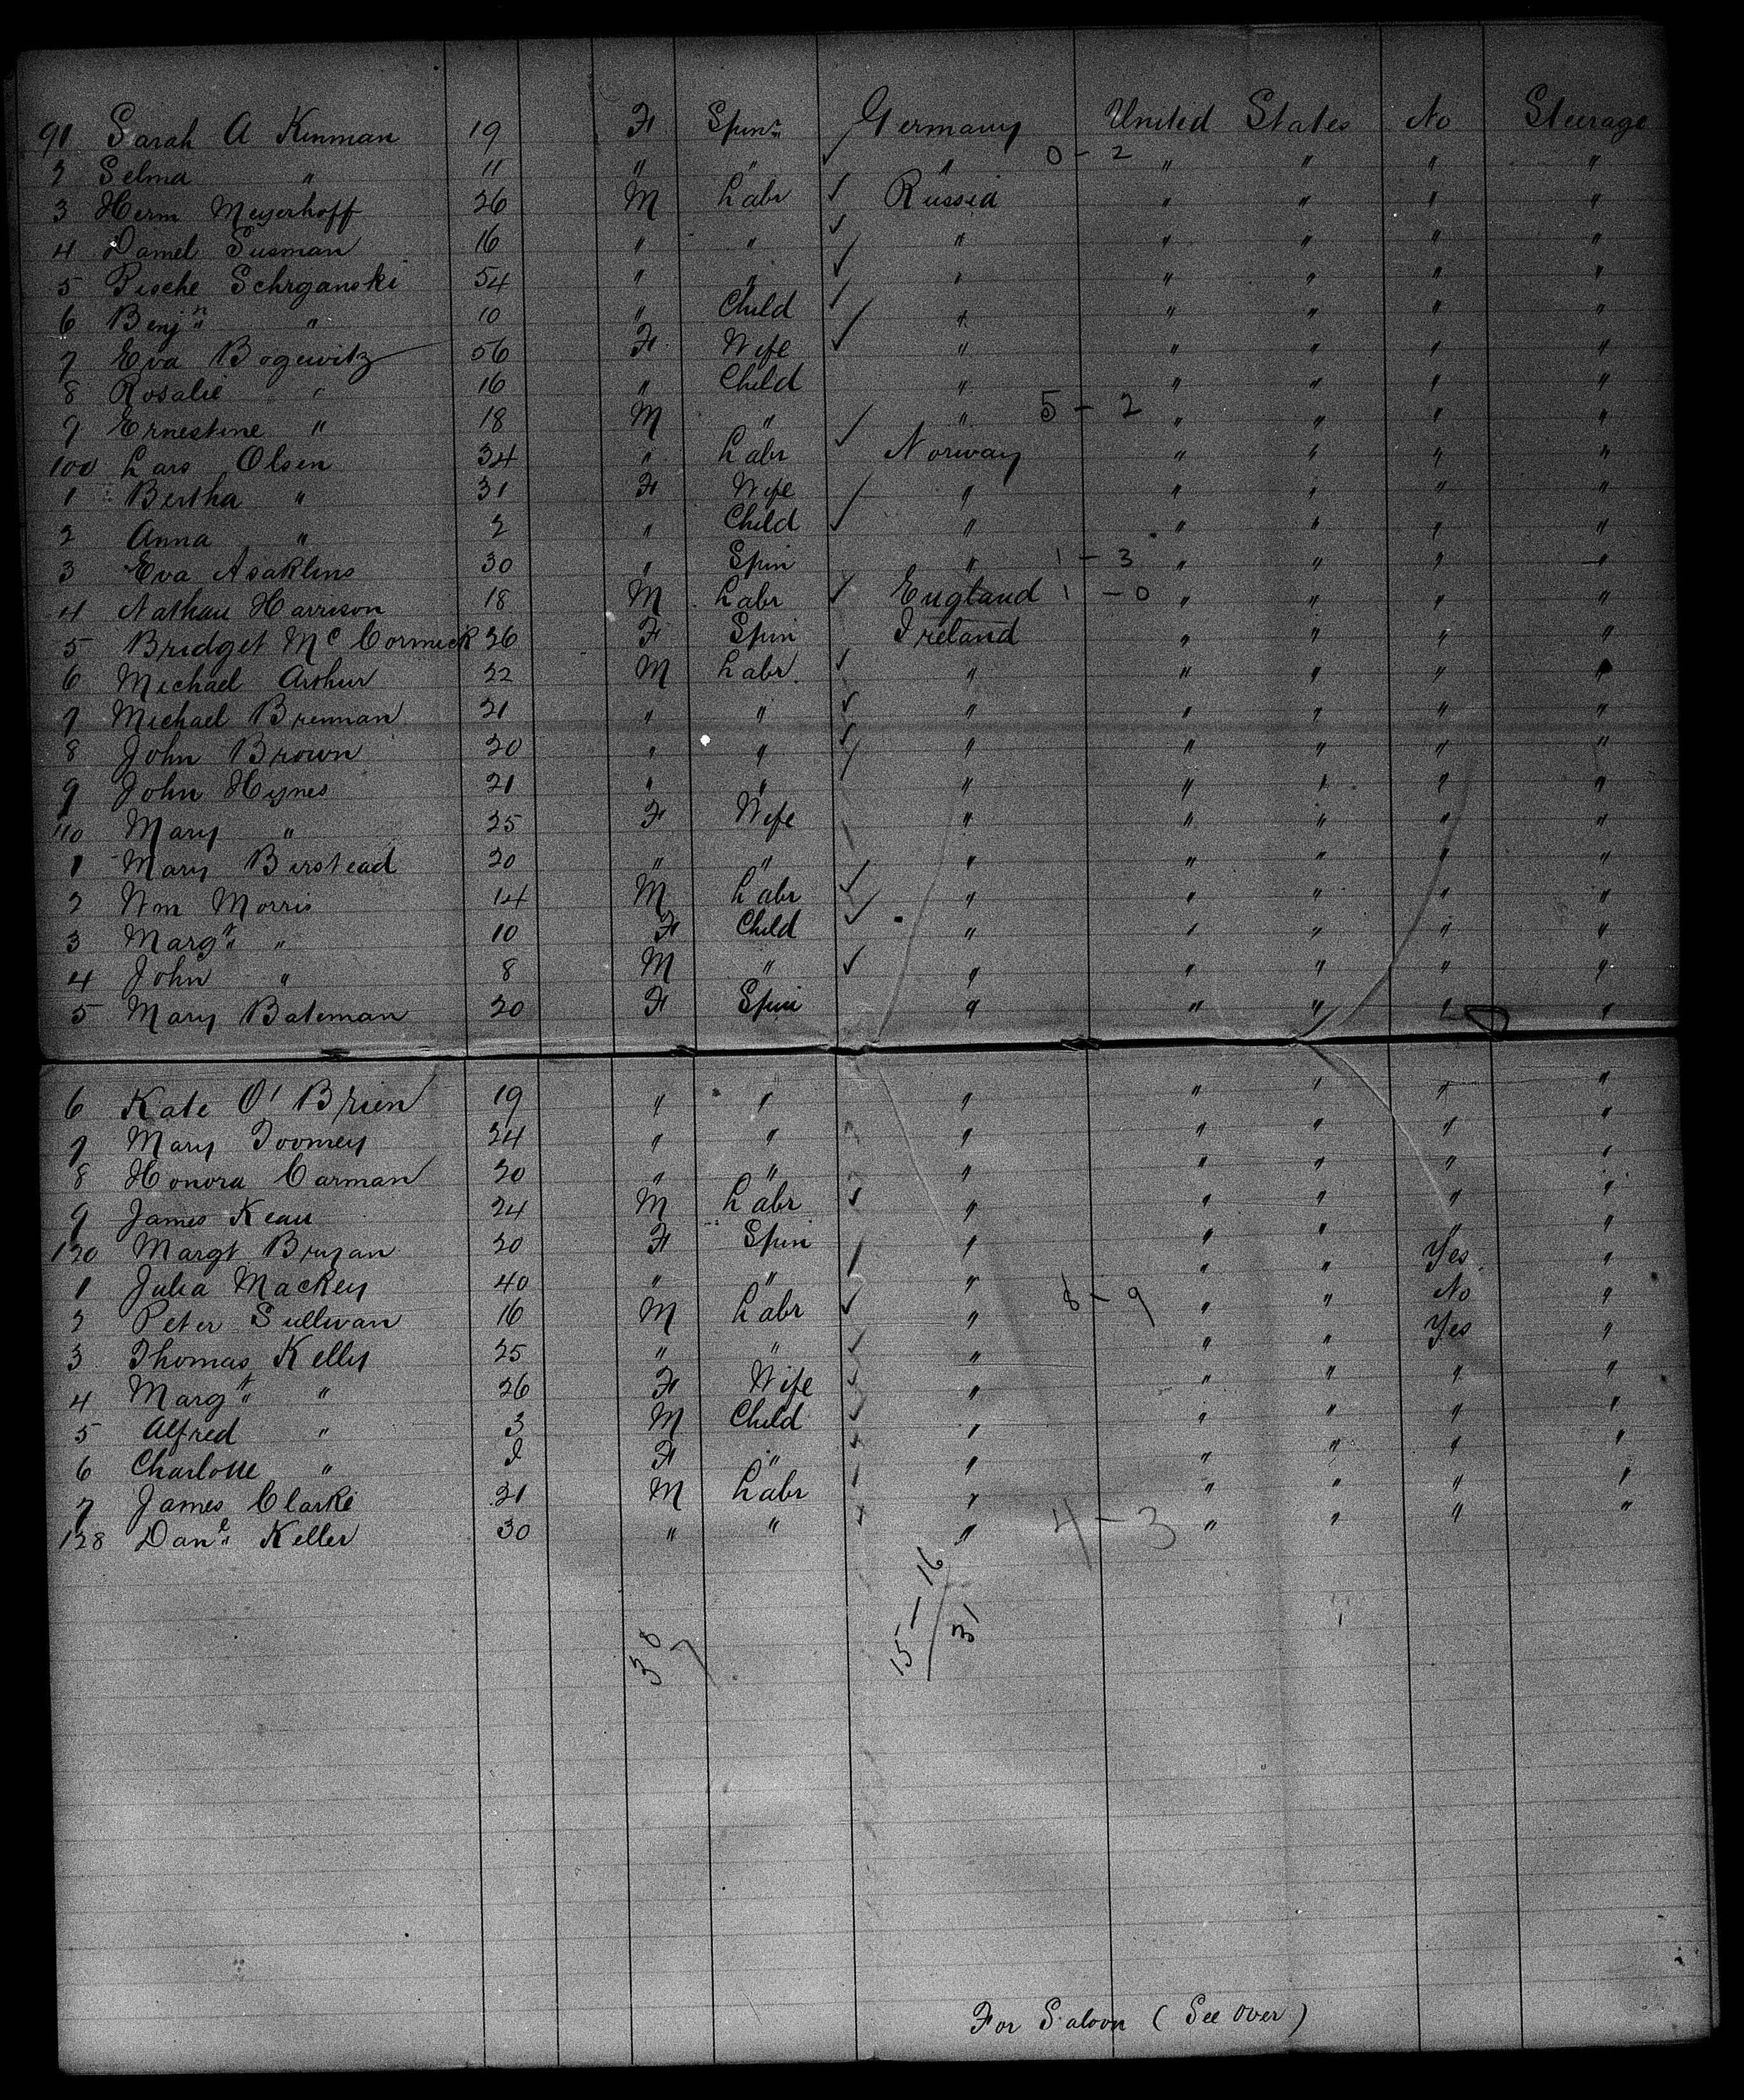 91 Sarah A Kinman 19 F Spinr Germany United States No Steerage
2 Selma " 11 " " " 0 - 2 " " " "
3 Herm Meyerhoff 26 M Labr Russia " " " "
4 Daniel Susman 16 " " " " " " "
5 Pesche Schrganski 54 " " " " " " "
6 Benjn " 10 " Child " " " " "
7 Eva Bogewitz 56 F Wife " " " " "
8 Rosalie " 16 " Child " " " " "
9 Ernestine " 18 M " " 5 - 2 " " " "
100 Lars Olsen 34 " Labr Norway " " " "
1 Bertha " 31 F Wife " " " " "
2 Anna " 2 " Child " " " " "
3 Eva Asaklins 30 " Spin " 1 - 3 " " " "
4 Nathan Harrison 18 M Labr England 1 - 0 " " " "
5 Bridget McCormick 26 F Spin Ireland " " " "
6 Michael Arthur 22 M Labr " " " " "
7 Michael Brennan 21 " " " " " " "
8 John Brown 20 " " " " " " "
9 John Hynes 21 " " " " " " "
110 Mary " 25 F Wife " " " " "
1 Mary Berstead 20 " " " " " " "
2 Wm Morris 14 M Labr " " " " "
3 Margt " 10 F Child " " " " "
4 John " 8 M " " " " " "
5 Mary Bateman 20 F Spin " " " " "
6 Kate O'Brien 19 " " " " " " "
7 Mary Toomey 24 " " " " " " "
8 Honora Carman 20 " " " " " " "
9 James Kean 24 M Labr " " " " "
120 Margt Bryan 20 F Spin " " " " "
1 Julia Mackey 40 " " " " " Yes "
2 Peter Sullivan 16 M Labr " 8 - 9 " " No "
3 Thomas Kelly 25 " " " " " Yes "
4 Margt " 26 F Wife " " " " "
5 Alfred " 3 M Child " " " " "
6 Charlotte " 2 F " " " " " "
7 James Clarke 21 M Labr " " " " "
128 Danl Keller 30 " " " 4 - 3 " " " "
38
15 - 16
31
For Saloon (See Over)